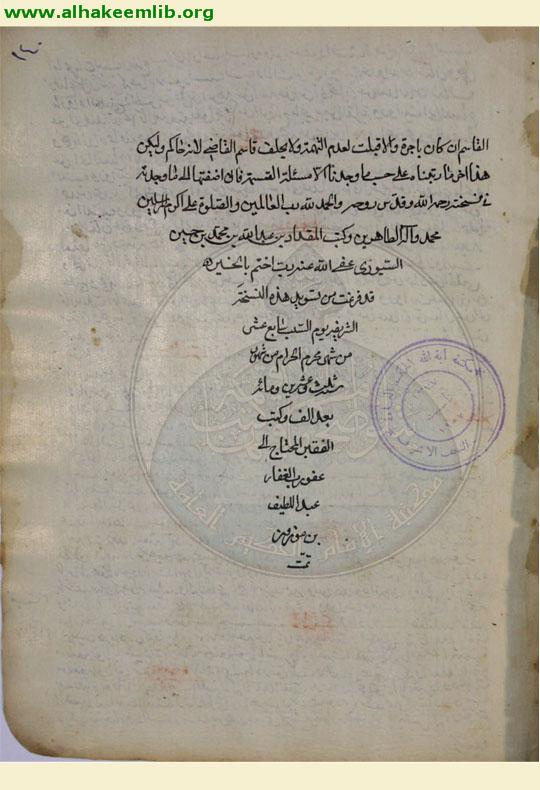 www.alhakeemlib.org
١٤٠
القاسم ان كان باجرة والا قبلت لعدم التهمة ولا يحلف قاسم القاضي لانه حاكم وليكن
هذا اخر ما رتبناه على حسب ما وجدناه الا مسئلة القسمة فانى اضفتها الى ما وجدته
في نسخته رحمه الله وقدس روحه والحمد لله رب العالمين والصلوة على اكرم المرسلين
محمد وآله الطاهرين وكتب المقداد بن عبد الله بن محمد بن حسين
السيوري عفى الله عنه رب اختم بالخير
قد فرغت من تسويد هذه النسخة
الشريفة يوم السبت سابع عشر
من شهر محرم الحرام من شهور
ثلث وعشرين ومائة
بعد الف وكتب
الفقير المحتاج الى
عفو رب الغفار
عبد اللطيف
بن
تمت
مكتبة الامام الحكيم العامة